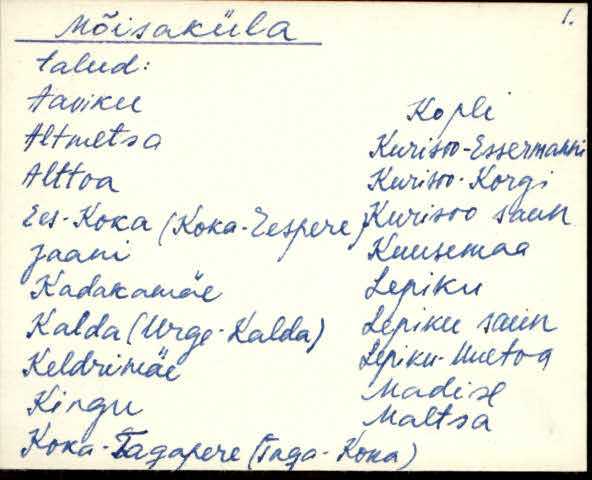 Mõisaküla
1.
talud:
Aaviku
Altmetsa
Alttoa
Ees-Koka (Koka-Eespere)
Jaani
Kadakamäe
Kalda (Urge-Kalda)
Keldrimäe
Kingu
Koka-Tagapere (Taga-Koka)
Kopli
Kurisoo-Essermanni
Kurisoo-Korgi
Kurisoo saun
Kuusemaa
Lepiku
Lepiku saun
Lepiku-Uuetoa
Madise
Maltsa